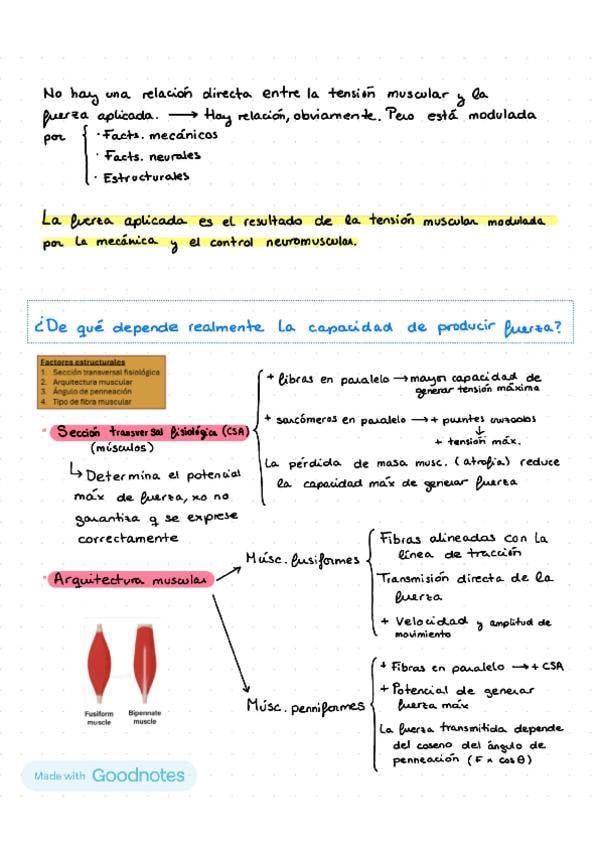 No hay una relación directa entre la tensión muscular y la
fuerza aplicada. → Hay relación, obviamente. Pero está modulada
por
· Facts. mecánicos
· Facts. neurales
· Estructurales
La fuerza aplicada es el resultado de la tensión muscular modulada
por la mecánica y el control neuromuscular.
¿De qué depende realmente la capacidad de producir fuerza?
Factores estructurales
1. Sección transversal fisiológica
2. Arquitectura muscular
3. Ángulo de penneación
4. Tipo de fibra muscular
Sección transversal fisiológica (CSA)
(músculos)
↳ Determina el potencial
máx de fuerza, xo no
garantiza q se exprese
correctamente
+ fibras en paralelo → mayor capacidad de
generar tensión máxima
+ sarcómeros en paralelo → + puentes cruzados
↓
+ tensión máx.
La pérdida de masa musc. (atrofia) reduce
la capacidad máx de generar fuerza
Arquitectura muscular
Músc. fusiformes
Fibras alineadas con la
línea de tracción
Transmisión directa de la
fuerza
+ Velocidad y amplitud de
movimiento
Fusiform
muscle
Bipennate
muscle
Músc. penniformes
+ Fibras en paralelo → + CSA
+ Potencial de generar
fuerza máx
La fuerza transmitida depende
del coseno del ángulo de
penneación (F × cosθ)
Made with Goodnotes